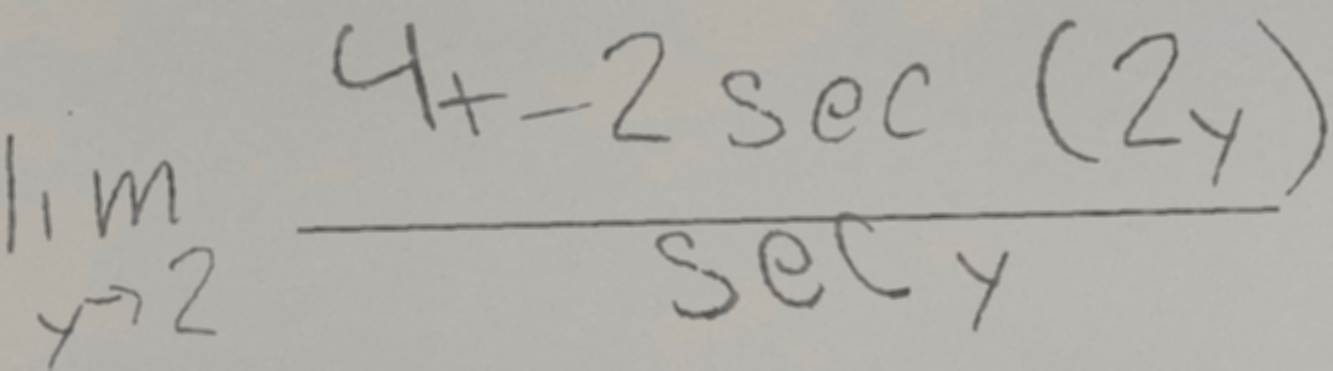 \lim_{y \to 2} \frac{4x - 2 \sec(2y)}{\sec y}